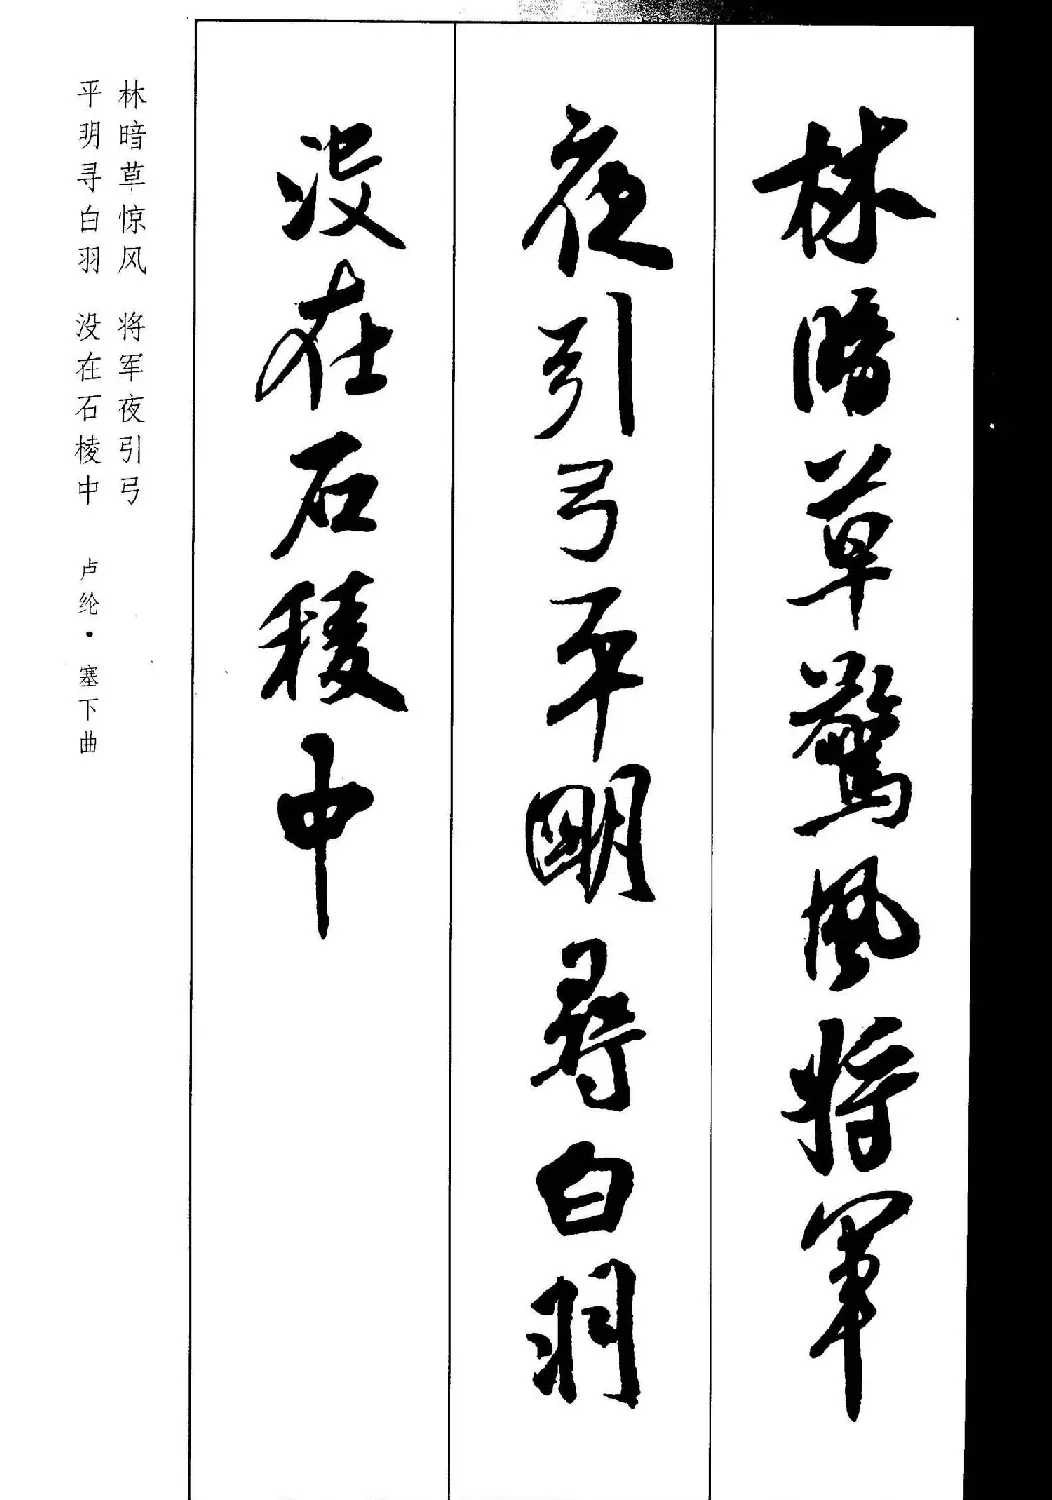 林暗草驚風将軍
夜引弓平明尋白羽
没在石稜中
林暗草惊风 将军夜引弓
平明寻白羽 没在石棱中 卢纶·塞下曲